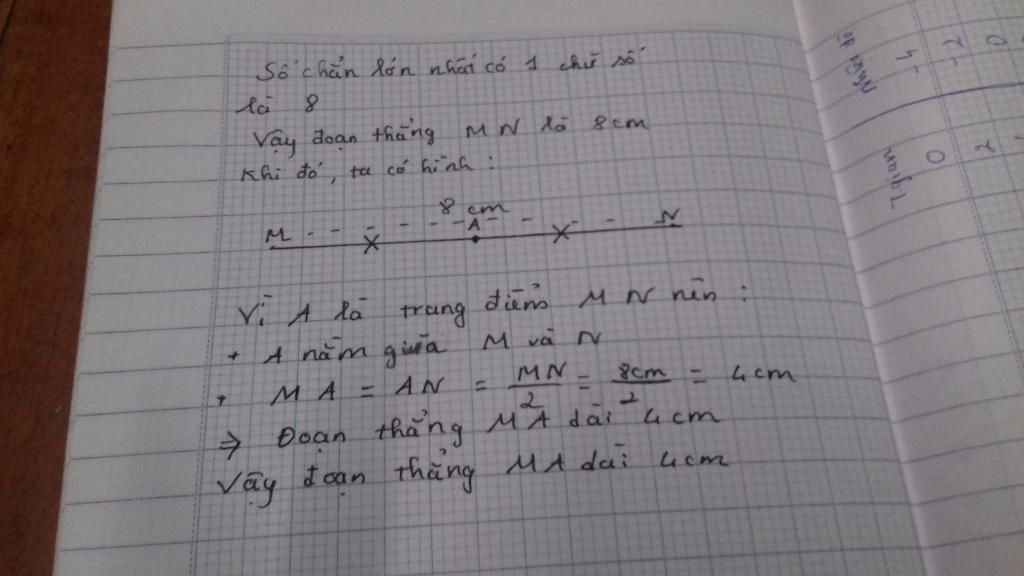 Số chẵn lớn nhất có 1 chữ số
là 8
Vậy đoạn thẳng MN là 8cm
Khi đó, ta có hình:
8 cm
M A N
Vì A là trung điểm MN nên:
+ A nằm giữa M và N
+ MA = AN = MN/2 = 8cm/2 = 4cm
⇒ Đoạn thẳng MA dài 4cm
Vậy đoạn thẳng MA dài 4cm